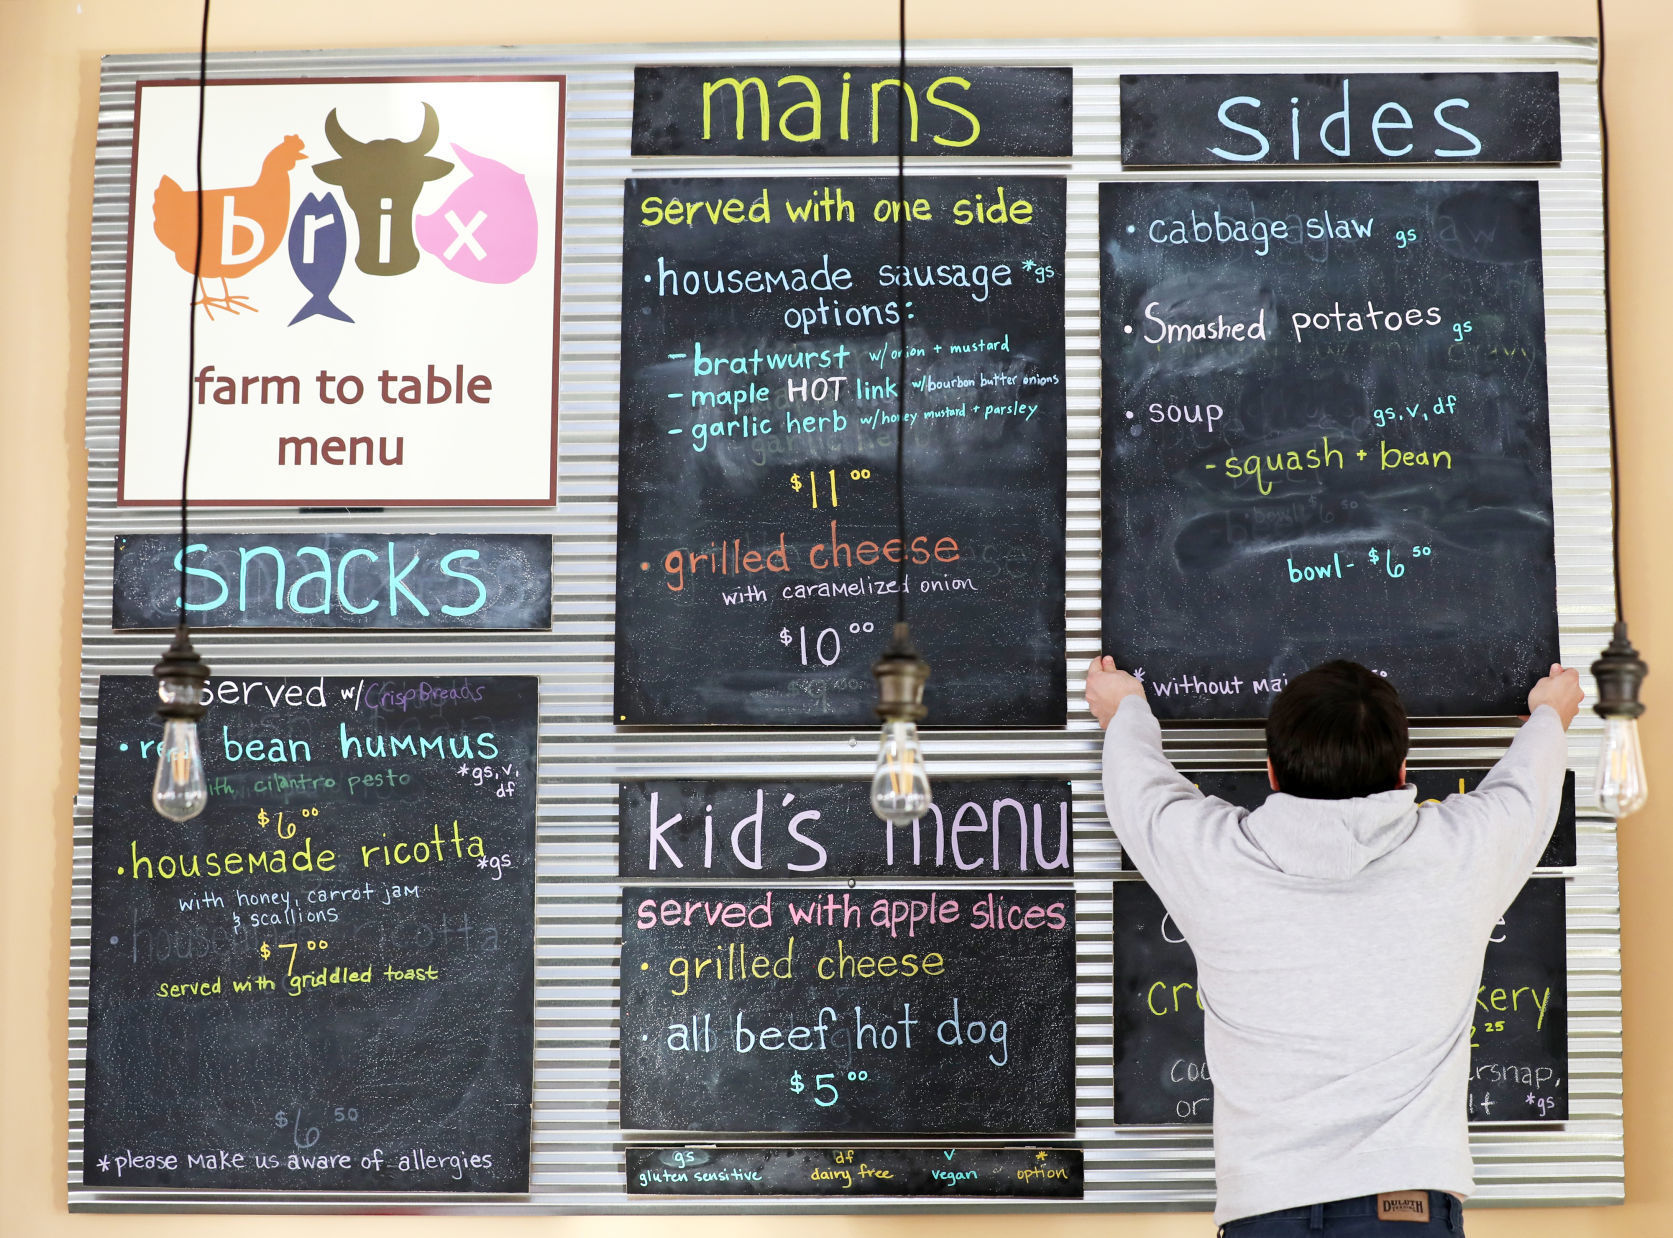 brix
farm to table
menu
snacks
served w/ Crisp Breads
bean hummus
with cilantro pesto
*gs, v,
df
$6.00
• housemade ricotta
*gs
with honey, carrot jam
& scallions
$7.00
served with griddled toast
$6.50
*please make us aware of allergies
mains
served with one side
• housemade sausage *gs
options:
- bratwurst w/ onion + mustard
- maple HOT link w/ bourbon butter onions
- garlic herb w/ honey mustard + parsley
$11.00
• grilled cheese
with caramelized onion
$10.00
kid's menu
served with apple slices
• grilled cheese
• all beef hot dog
$5.00
gs
gluten sensitive
df
dairy free
v
vegan
*
option
sides
• cabbage slaw gs
• Smashed potatoes gs
• soup gs, v, df
- squash + bean
bowl - $6.50
* without
or
*gs
DULUTH